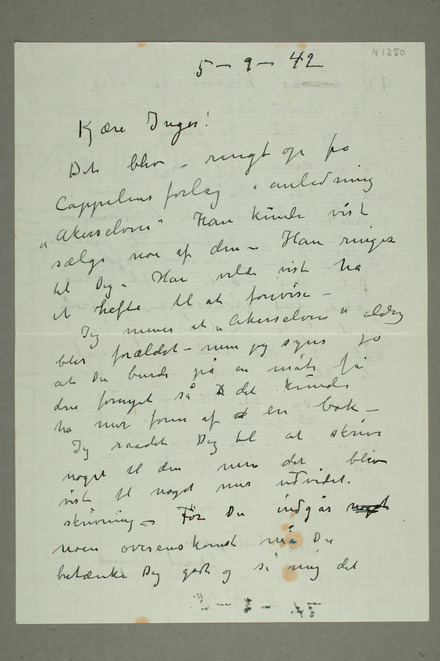 N 1250
5 - 9 - 42
Kjære Inger!
Det blev - ringt op fra
Cappelens forlag i anledning
"Akerselven" Han kunde vist
sælge noe af den - Han ringer
til Dig - Han vilde vist ha
et hefte til at forevise -
Jeg mener at "Akerselven" aldrig
blir forældet - men jeg synes jo
at Du burde på en måte få
den fornyet så det kunde
ha mer form af en bok -
Jeg raadet Dig til at skrive
noget til den men det blev
vist til noget mer udvidet.
skrivning - Før Du indgår
noen overenskomst må Du
betænke Dig godt og si mig det